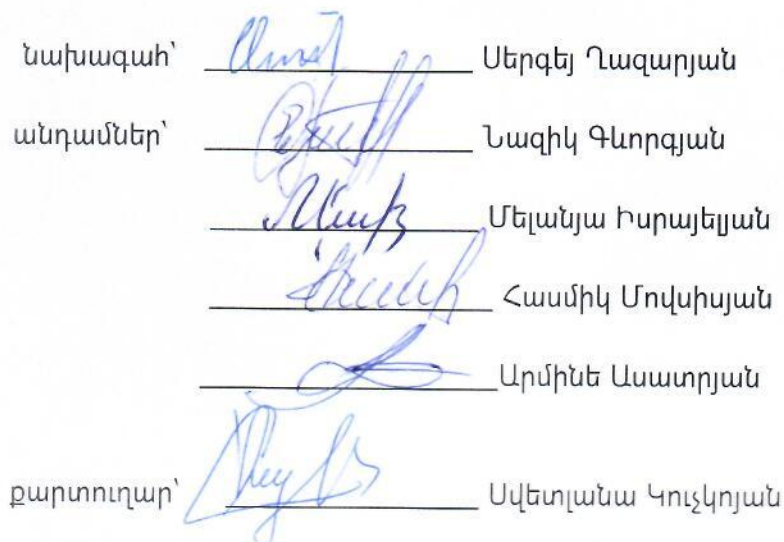 նախագահ՝ Սերգեյ Ղազարյան
անդամներ՝ Նազիկ Գևորգյան
Մելանյա Իսրայելյան
Հասմիկ Մովսիսյան
Արմինե Ասատրյան
քարտուղար՝ Սվետլանա Կուչկոյան